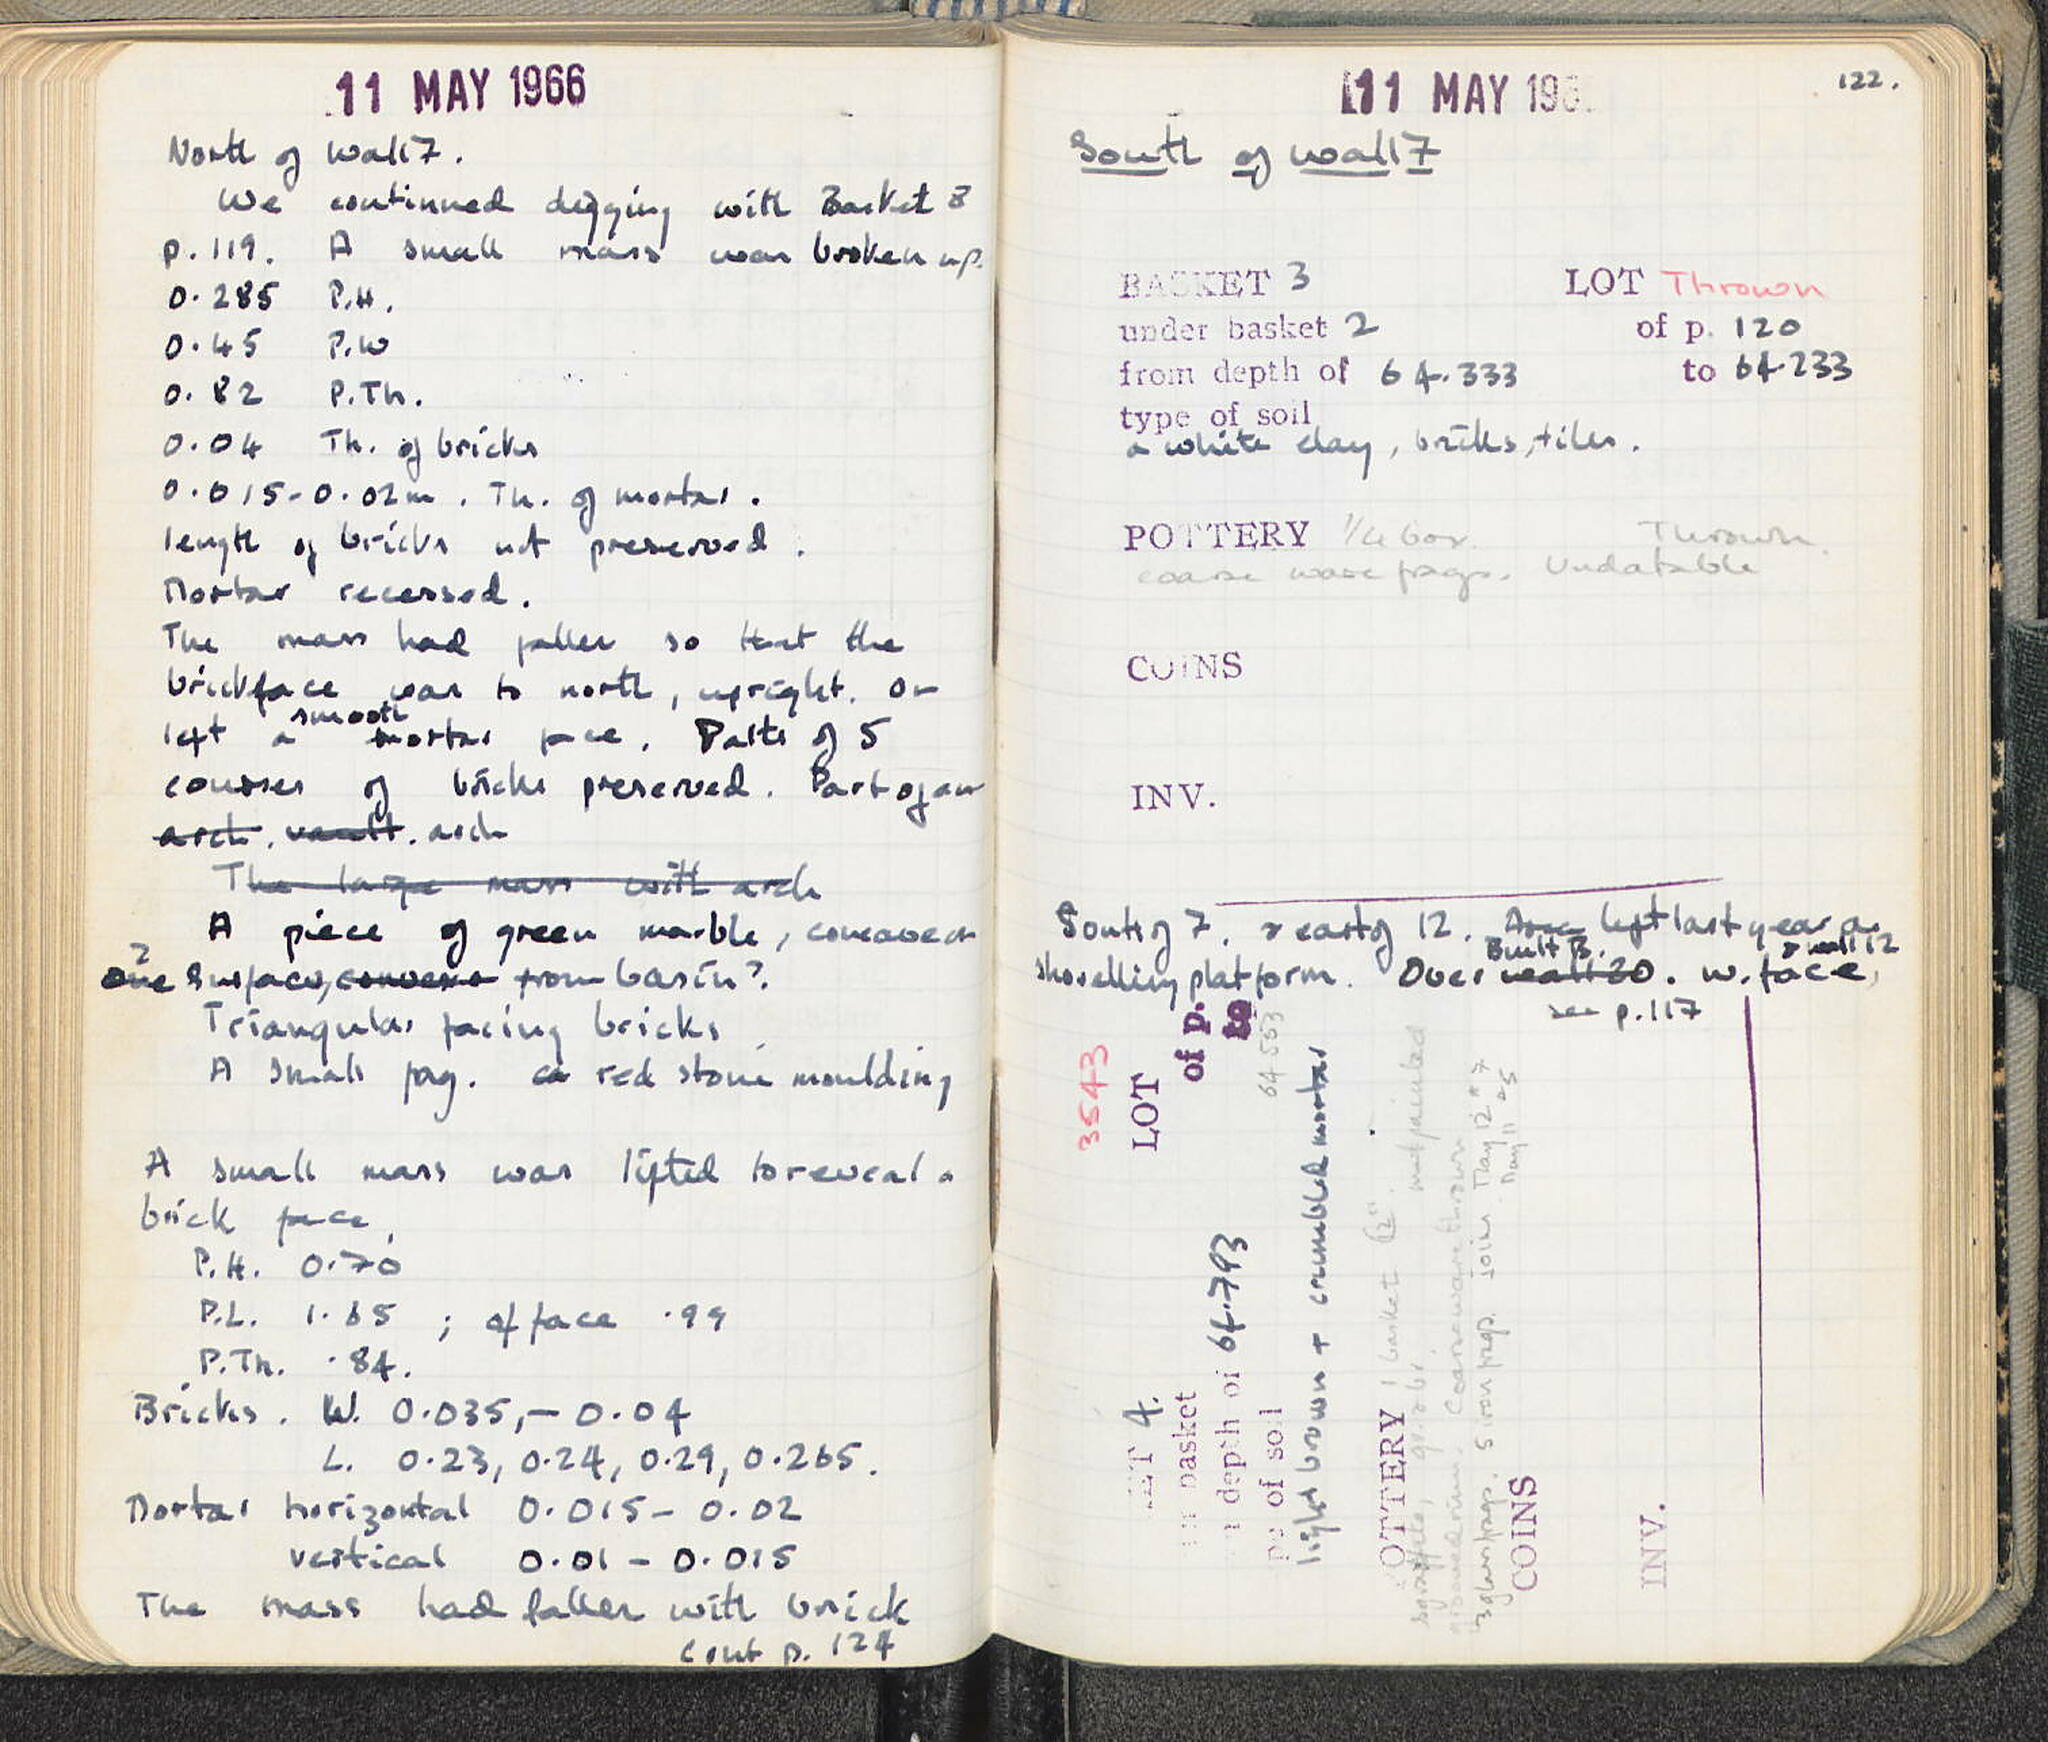 11 MAY 1966
North of wall 7.
We continued digging with Basket 8
p. 119. A small mass was broken up.
0.285 P.H.
0.45 P.W
0.82 P.Th.
0.04 Th. of bricks
0.015-0.02m. Th. of mortar.
length of bricks not preserved.
Mortar recessed.
The mass had fallen so that the
brickface was to north, upright. On
left a smooth mortar face. Parts of 5
courses of bricks preserved. Part of an
arch. vault. arch
The large mass with arch
A piece of green marble, concave on
? one surface, convex from basin?.
Triangular facing bricks
A small frag. red stone moulding
A small mass was lifted to reveal a
brick face.
P.H. 0.70
P.L. 1.65 ; of face .99
P.Th. .84.
Bricks. W. 0.035,- 0.04
L. 0.23, 0.24, 0.29, 0.265.
Mortar horizontal 0.015 - 0.02
vertical 0.01 - 0.015
The mass had fallen with brick
cont p. 124
11 MAY 196
122.
South of wall 7
BASKET 3 LOT Thrown
under basket 2 of p. 120
from depth of 64.333 to 64.233
type of soil
a white clay, bricks, tiles.
POTTERY 1/4 box. Thrown.
coarse ware frags. Undatable
COINS
INV.
South of 7, & east of 12. Area left last year as
Built B. & wall 12
shovelling platform. Over wall 20. W. face,
see p. 117
3543
LOT
of p.
to
64.553
KET 4.
basket
depth of 64.793
of soil
light brown + crumbled mortar
POTTERY 1 basket
not painted
Coarse ware thrown
3 glass frags. 5 iron frags. Join May 12 #7
May 11 #5
COINS
INV.